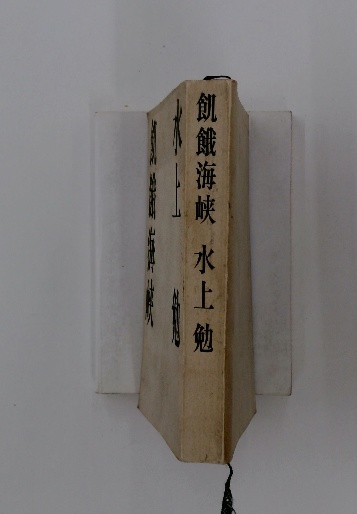 飢餓海峡 水上勉
水上 勉
飢餓海峡